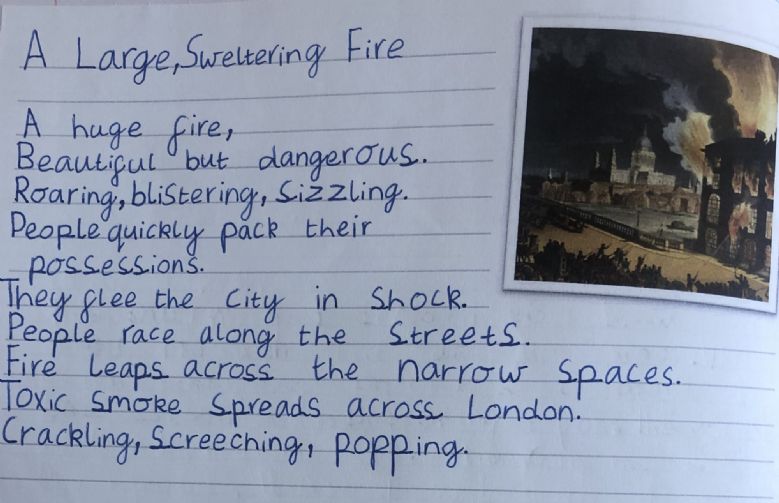 A Large, Sweltering Fire
A huge fire,
Beautiful but dangerous.
Roaring, blistering, sizzling.
People quickly pack their
possessions.
They flee the city in shock.
People race along the streets.
Fire leaps across the narrow spaces.
Toxic smoke spreads across London.
Crackling, screeching, popping.